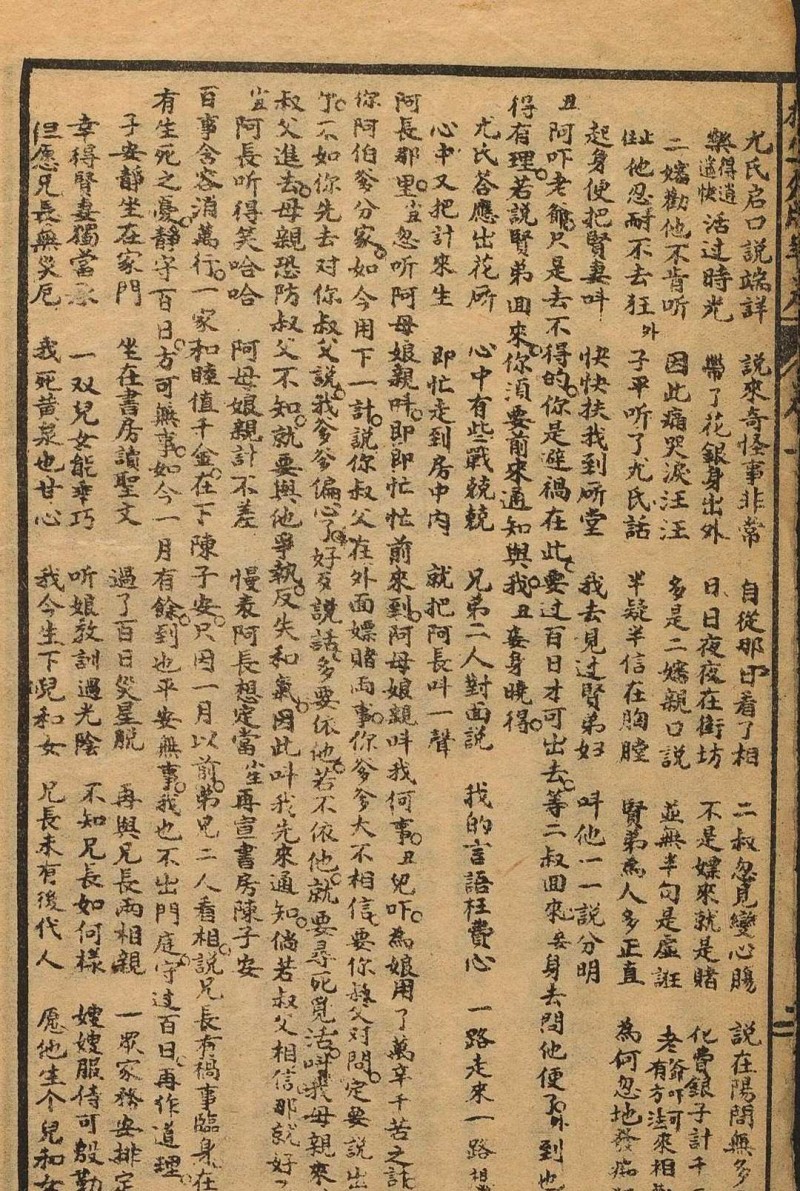 尤氏启口説端詳 説來奇怪事非常 自從那日看了相 二叔忽見變心腸 説在陽間無多
樂得逍遥快活过時光 帶了花銀身出外 日日夜夜在街坊 不是嫖來就是賭 化費銀子計千
二嬸勸他不肯听 因此痛哭淚汪汪 多是二嬸親口説 並無半句是虛誑 老爺吓可有方法來相
止住他忍耐不去狂 外 子平听了尤氏話 半疑半信在胸膛 賢弟為人多正直 為何忽地發痴
起身便把賢妻叫 快快扶我到厛堂 我去見过賢弟妇 叫他一一説分明
丑 阿吓老爺。只是去不得的。你是避禍在此。要过百日才可出去。等二叔回來。妾身去問他便了。外 到也
得有理。若説賢弟回來。你須要前來通知與我。丑 妾身曉得。
尤氏答應出花厛 心中有些戰兢兢 兄弟二人對面説 我的言語枉費心 一路走來一路想
心中又把計來生 即忙走到房中内 就把阿長叫一聲
阿長那里。岦 忽听阿母娘親叫。即即忙忙前來到。阿母娘親叫我何事。丑 兒吓。為娘用了萬辛千苦之計
你阿伯爹分家。如今用下一計。説你叔父在外面嫖賭兩事。你爹爹大不相信。要你叔父对問。定要説出
了。不如你先去对你叔父説。我爹爹偏心了。好歹説話。多要依他。若不依他。就要尋死覓活。叫我母親來
叔父進去。母親恐防叔父不知。就要與他爭執。反失和氣。因此叫我先來通知。倘若叔父相信。那就好了
岦 阿長听得笑哈哈 阿母娘親計不差 慢表阿長想定當 生 再宣書房陳子安
百事含容消萬行。一家和睦值千金。在下陳子安。只因一月以前。弟兄二人看相。説兄長有禍事臨身。在
有生死之憂。靜守百日。方可無事。如今一月有餘。到也平安無事。我也不出門庭。守过百日。再作道理。
子安靜坐在家門 坐在書房讀聖文 過了百日災星脱 再與兄長兩相親 一眾家務安排定
幸得賢妻獨當承 一双兒女能乖巧 听娘教訓過光陰 不知兄長如何樣 嫂嫂服侍可殷勤
但愿兄長無災厄 我死黄泉也甘心 我今生下兒和女 兄長未有後代人 愿他生个兒和女